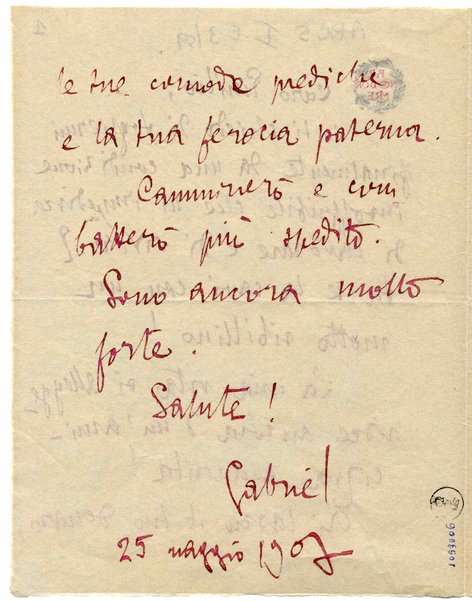 le tue comode prediche
e la tua ferocia paterna.
Camminerò e com
batterò più spedito.
Sono ancora molto
forte.
Salute!
Gabriel
25 maggio 1907